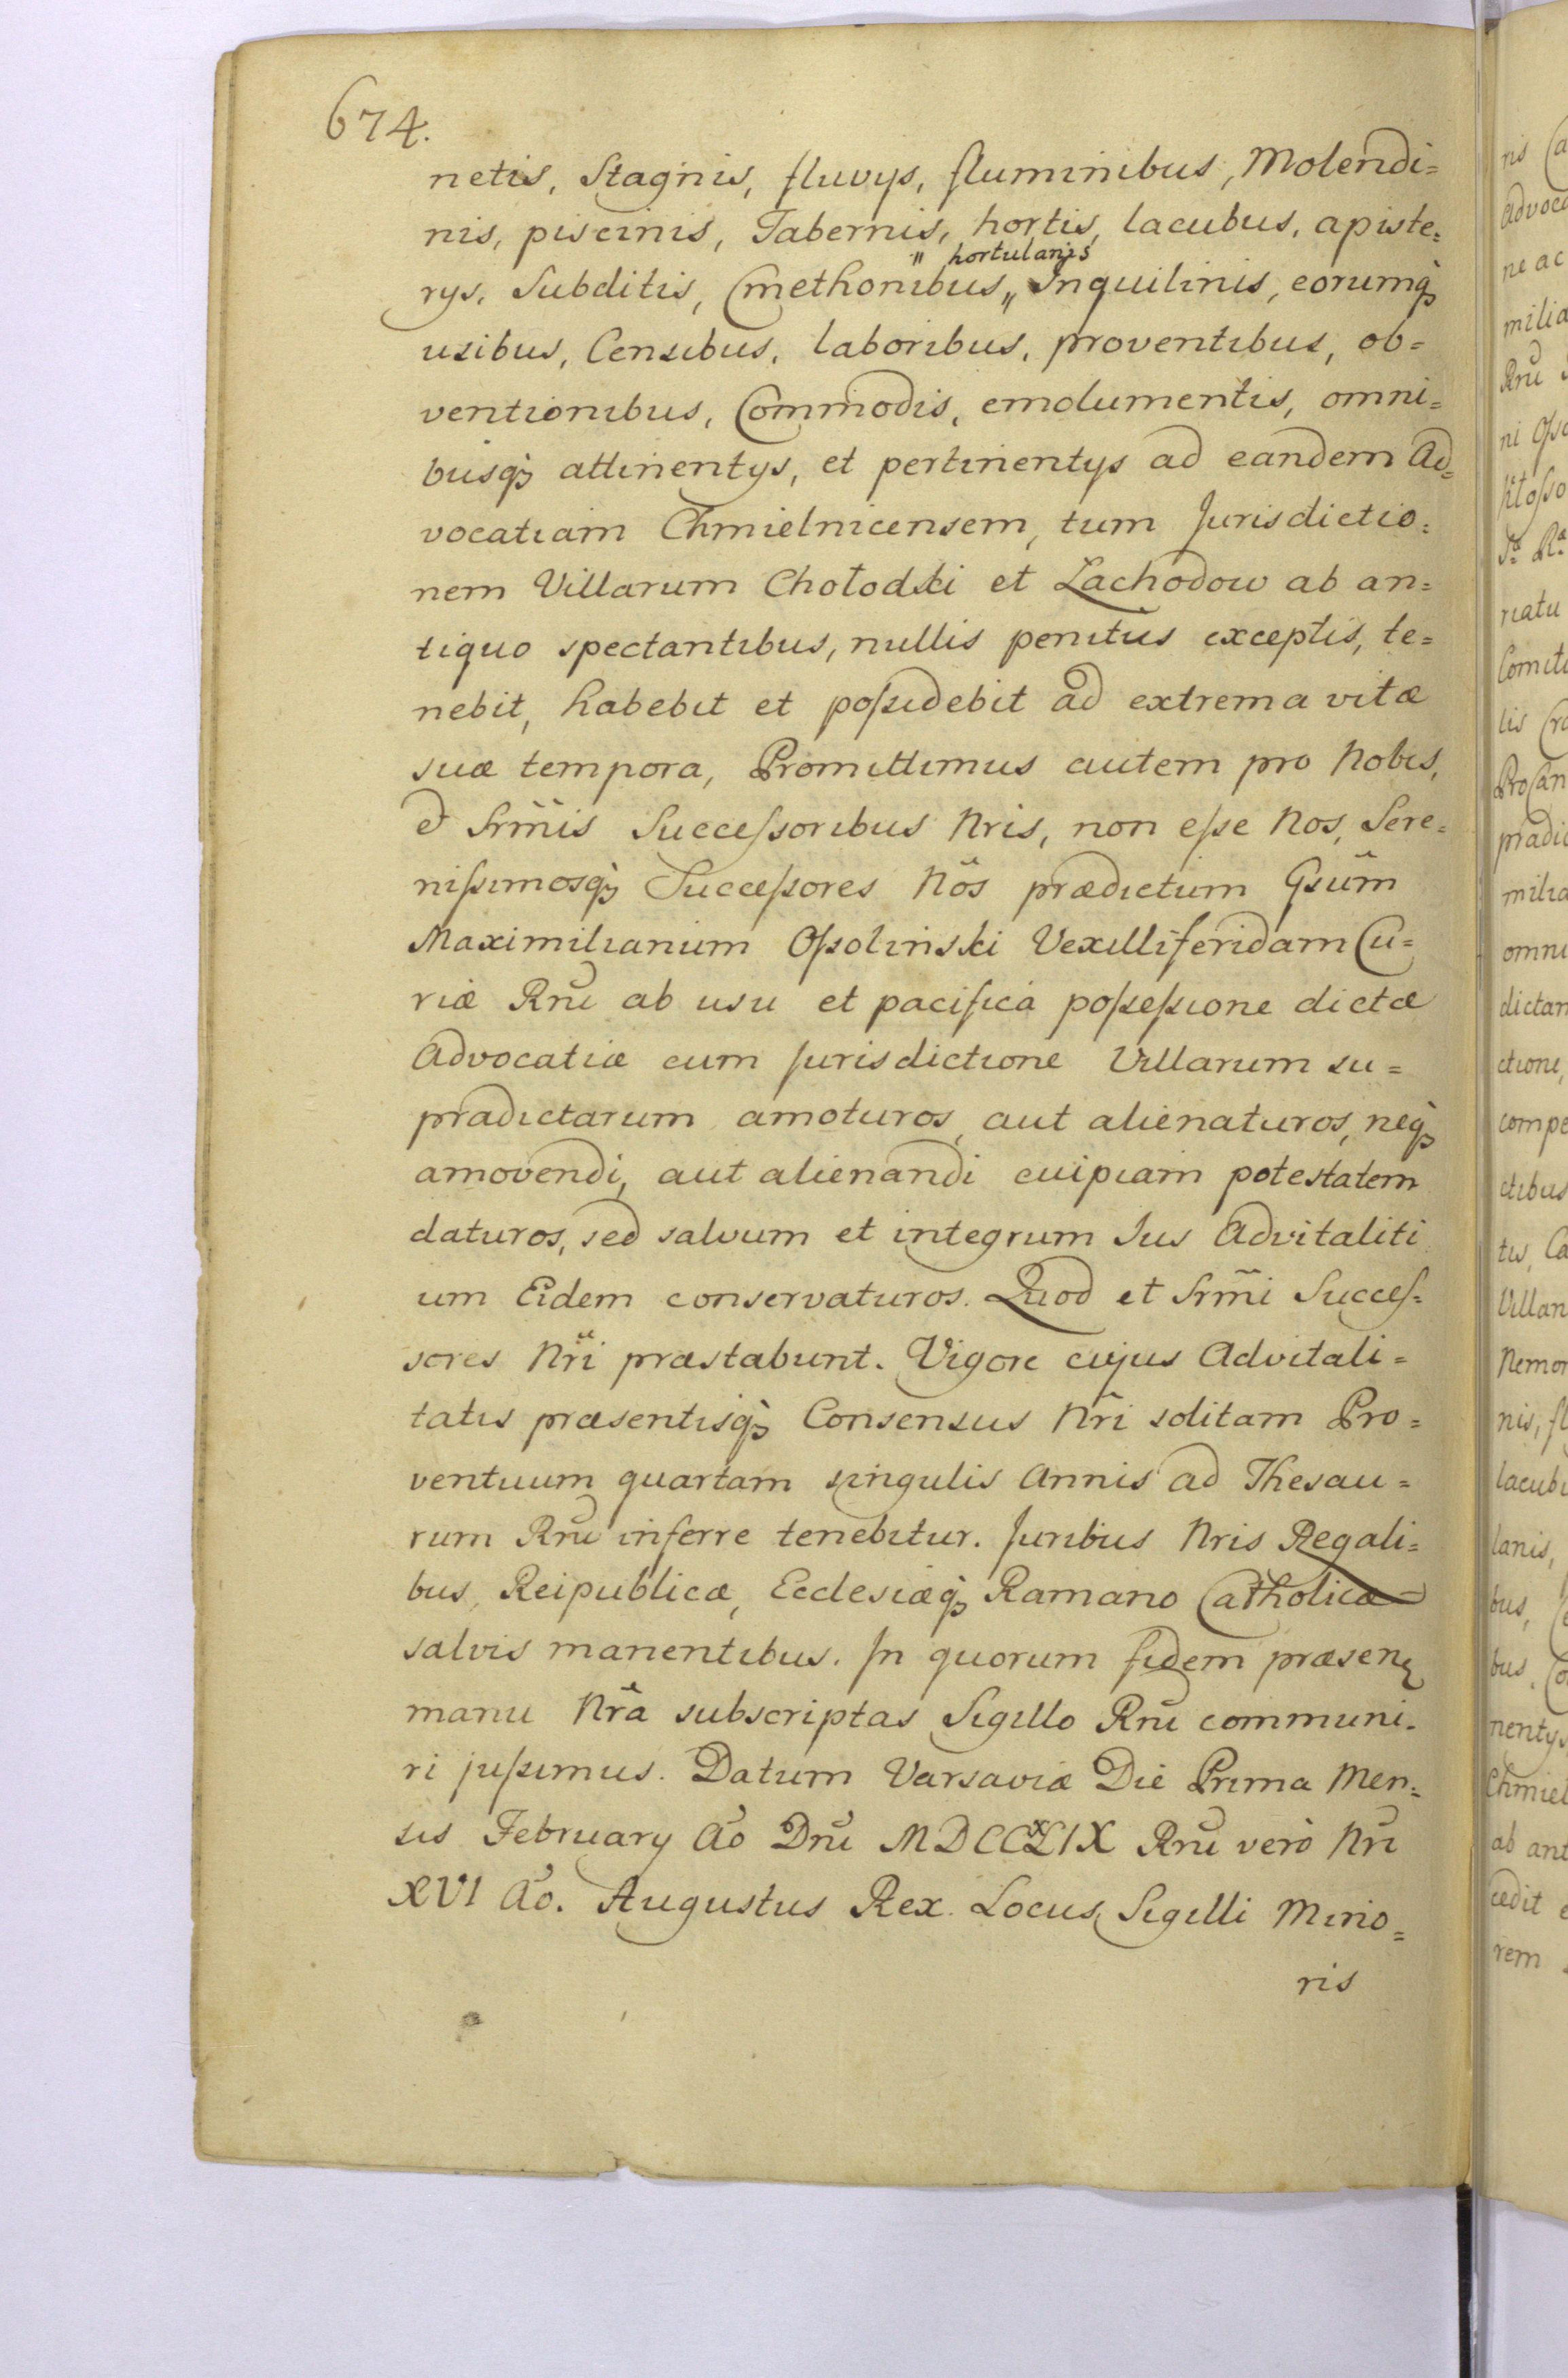 674.
netis, Stagnis, fluvys, fluminibus, Molendi=
nis, piscinis, Tabernis, hortis, lacubus, apiste=
" hortulanis
rys, Subditis, Cmethonibus,, Inquilinis, eorumq3
usibus, Censibus, laboribus, proventibus, ob=
ventionibus, Commodis, emolumentis, omni=
busq3 attinentys, et pertinentys ad eandem Ad=
vocatiam Chmielnicensem, tum Jurisdictio=
nem Villarum Chołodki et Lachodow ab an=
tiquo spectantibus, nullis penitus exceptis, te=
nebit, habebit et poſsidebit ad extrema vitæ
suæ tempora, Promittimus autem pro Nobis,
et Srm̃is Succeſsoribus Nris, non eſse Nos, Sere=
niſsimosq3 Succeſsores Nõs prædictum Gsum̃
Maximilianum Oſsolinski Vexilliferidam Cu=
riæ Rnĩ ab usu et pacifica poſseſsione dictæ
Advocatiæ cum Jurisdictione Villarum su=
pradictarum amoturos, aut alienaturos, neq3
amovendi, aut alienandi cuipiam potestatem
daturos, sed salvum et integrum Jus Advitaliti
um Eidem conservaturos. Quod et Srm̃i Succeſ=
sores Nrĩ præstabunt. Vigore cujus Advitali=
tatis præsentisq3 Consensus Nrĩ solitam Pro=
ventuum quartam singulis Annis ad Thesau=
rum Rnĩ inferre tenebitur. Juribus Nris Regali=
bus, Reipublicæ, Ecclesiæq3 Ramano Catholicæ
salvis manentibus. In quorum fidem præsen
manu Nrã subscriptas Sigillo Rnĩ communi.
ri juſsimus. Datum Varsaviæ Die Prima Men=
sis February Aõ Dnĩ MDCCXLIX Rnĩ verò Nrĩ
XVI Aõ. Augustus Rex. Locus Sigilli Mino=
ris